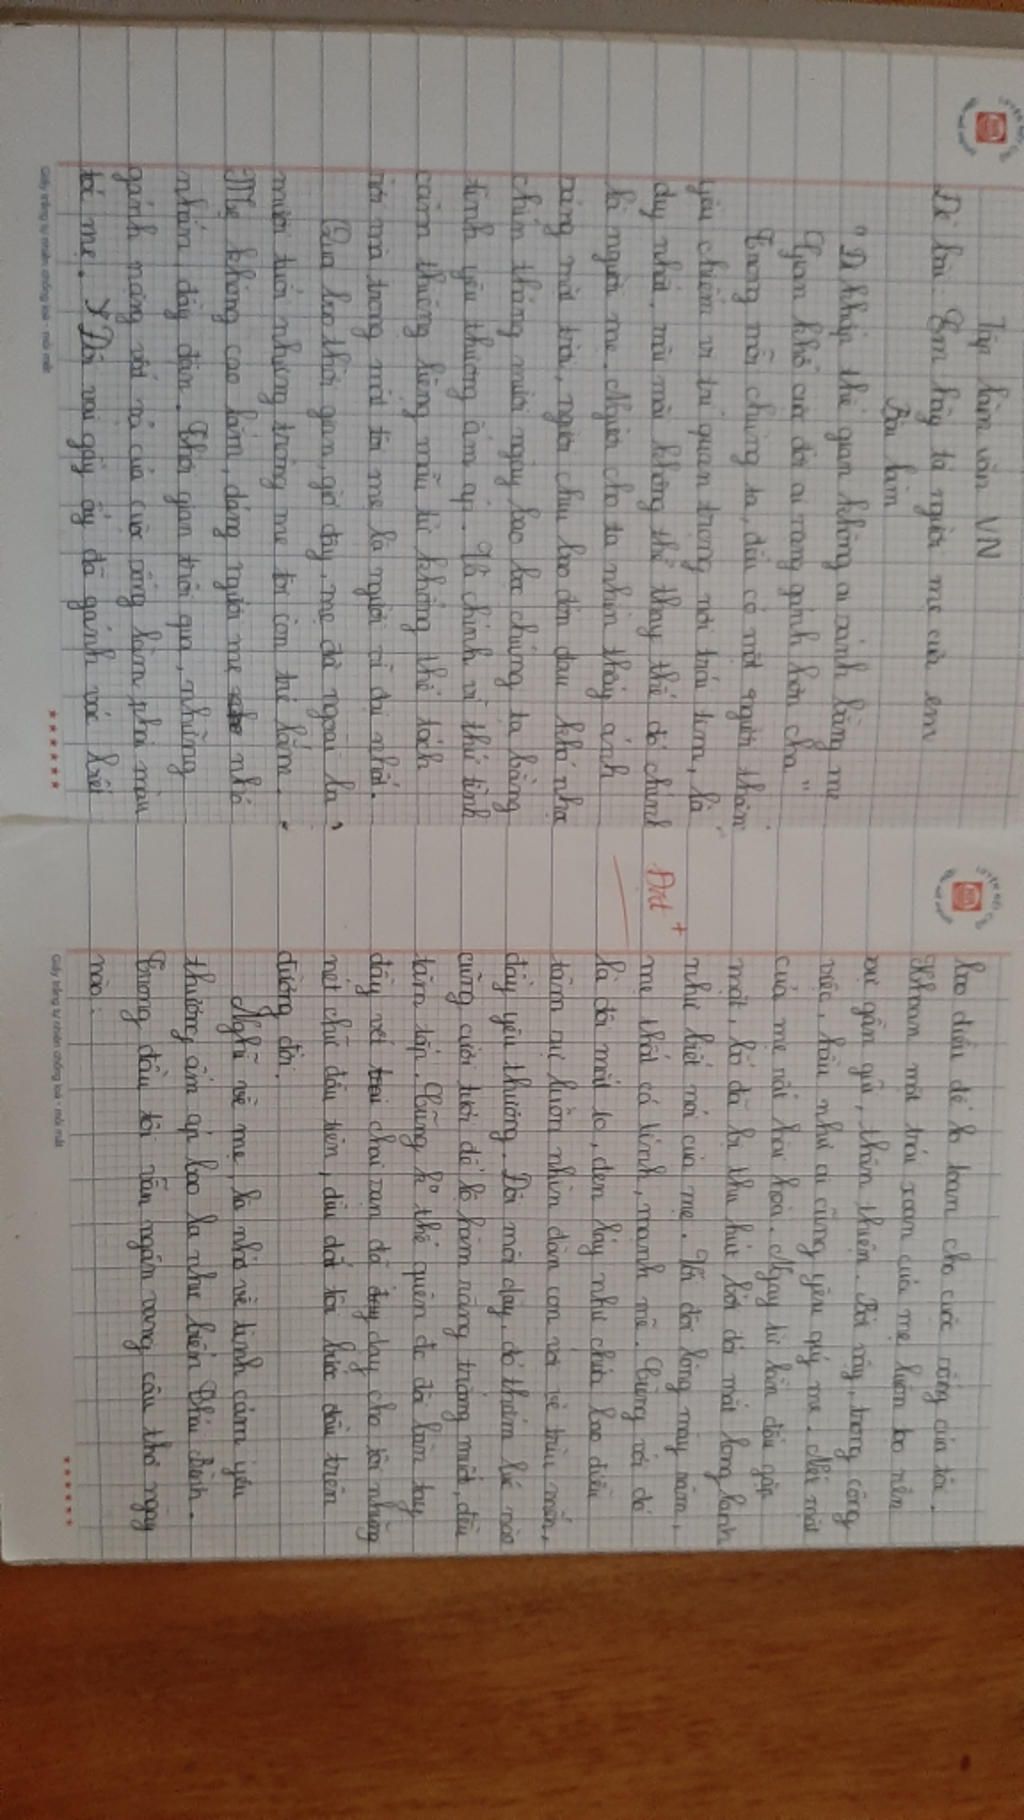 Tập làm văn VN
Đề bài: Em hãy tả người mẹ của em
Bài làm
"Đi khắp thế gian không ai sánh bằng mẹ
Gian khổ cuộc đời ai nặng gánh hơn cha"
Trong mỗi chúng ta, đều có một người thân
yêu chiếm vị trí quan trọng nơi trái tim, là
duy nhất, mãi mãi không thể thay thế đó chính
là người mẹ. Người cho ta nhìn thấy ánh
sáng mặt trời, người chịu bao đớn đau khó nhọ
chín tháng mười ngày bao bọc chúng ta bằng
tình yêu thương ấm áp. Và chính vì thứ tình
cảm thiêng liêng mẫu tử không thể tách
rời mà trong mắt tôi mẹ là người vĩ đại nhất.
Qua bao thời gian, giờ đây, mẹ đã ngoài ba
mươi tuổi nhưng trông mẹ tôi còn trẻ lắm.
Mẹ không cao lắm, dáng người mẹ nhỏ
nhắn, đầy đặn. Thời gian trôi qua, những
gánh nặng vất vả của cuộc sống làm phai màu
tóc mẹ. Đôi vai gầy ấy đã gánh vác biết
bao điều để lo toan cho cuộc sống của tôi.
Khuôn mặt trái xoan của mẹ luôn tạo nên
sự gần gũi, thân thiện. Bởi vậy, trong công
việc, hầu như ai cũng yêu quý mẹ. Nét mặt
của mẹ rất hài hòa. Ngay từ lần đầu gặp
mặt, họ đã bị thu hút bởi đôi mắt long lanh
như biết nói của mẹ. Với đôi lông mày rậm,
mẹ thật cá tính, mạnh mẽ. Cùng với đó
là đôi mắt to, đen láy như chứa bao điều
tâm sự luôn nhìn đàn con với vẻ trìu mến,
đầy yêu thương. Đôi môi dày, đỏ thắm lúc nào
cũng cười tươi để lộ hàm răng trắng muốt, đều
tăm tắp. Cũng k thể quên đc đôi bàn tay
đầy vết chai sạn đã dạy cho tôi những
nét chữ đầu tiên, dìu dắt tôi bước đầu trên
đường đời.
Nghĩ về mẹ, là nhớ về tình cảm yêu
thương ấm áp bao la như biển Thái Bình.
Trong đầu tôi vẫn ngân vang câu thơ ngày
nào:
Giấy trắng tự nhiên chống loá - mỏi mắt
Giấy trắng tự nhiên chống loá - mỏi mắt